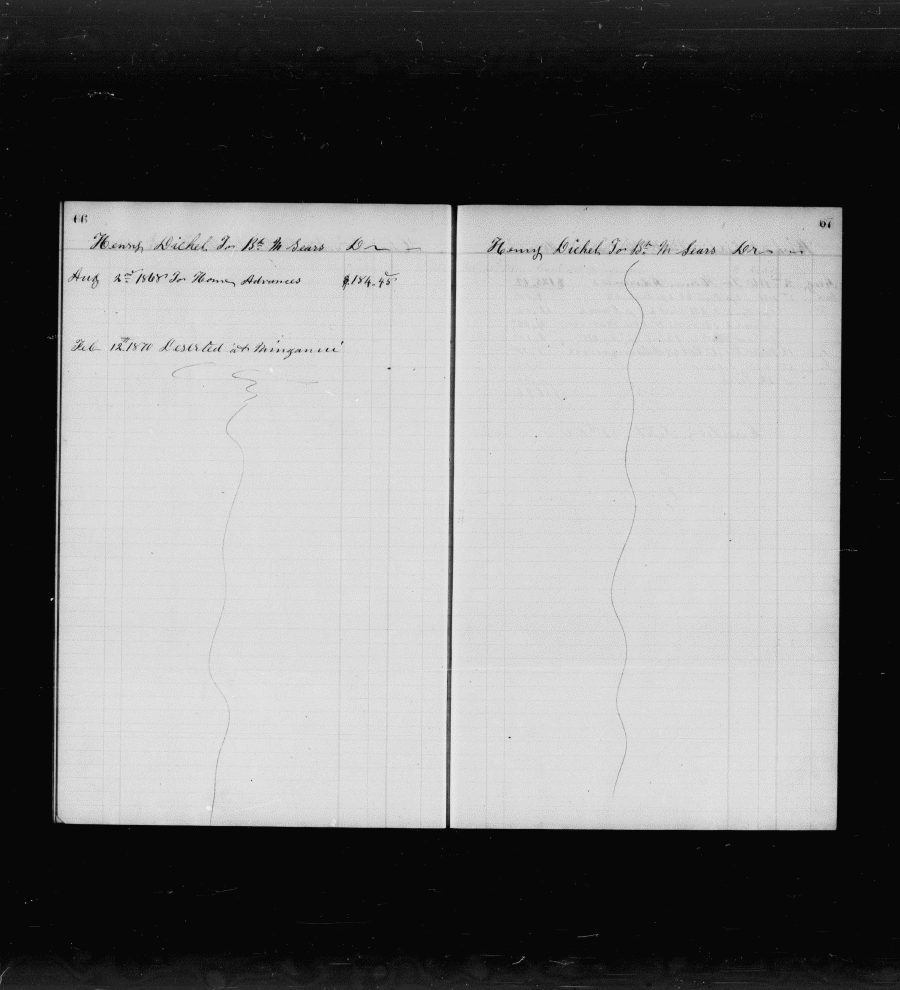 66
Henry Dickel To Bk M Sears Dr
Aug 2nd 1868 To Home Advances $184.45
Feb 12th 1870 Deserted at Minganui
67
Henry Dickel To Bk M Sears Dr